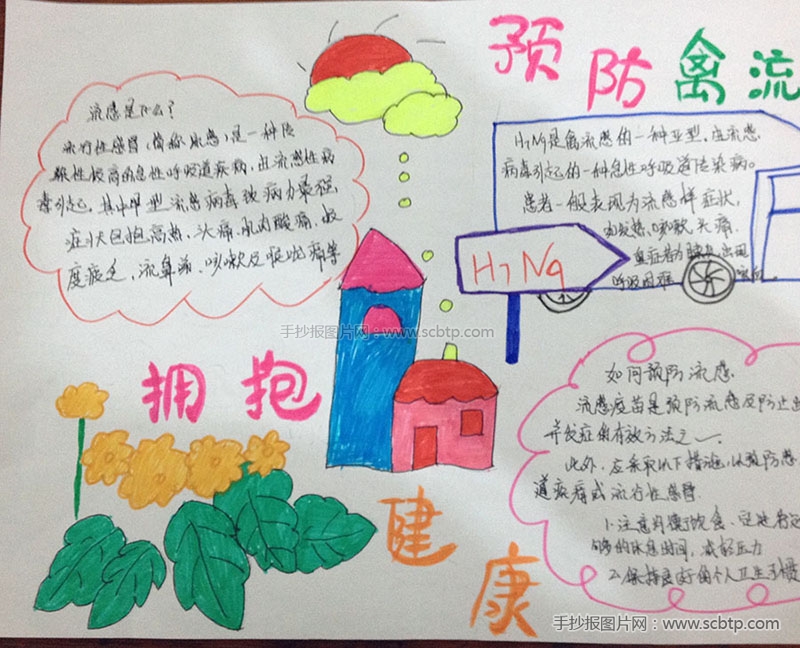 预防禽流
流感是什么?
流行性感冒,简称流感,是一种传
染性极高的急性呼吸道疾病,由流感性病
毒引起。其中甲型流感病毒致病力最强,
症状包括高热、头痛、肌肉酸痛、极
度疲乏、流鼻涕、咳嗽及喉咙痛等
H7N9是禽流感的一种亚型,由流感
病毒引起的一种急性呼吸道传染病。
患者一般表现为流感样症状,
如发热,咳嗽,头痛,
重症者 出现
呼吸困难
H7N9
手抄报图片网:www.scbtp.com
拥抱
健康
如何预防流感
流感疫苗是预防流感及防止出
并发症的有效方法之一。
此外,应采取以下措施,以预防感
道疾病或流行性感冒
1.注意均衡饮食、定
够的休息时间,减轻压力
2.保持良好的个人卫生习惯
手抄报图片网:www.scbtp.com